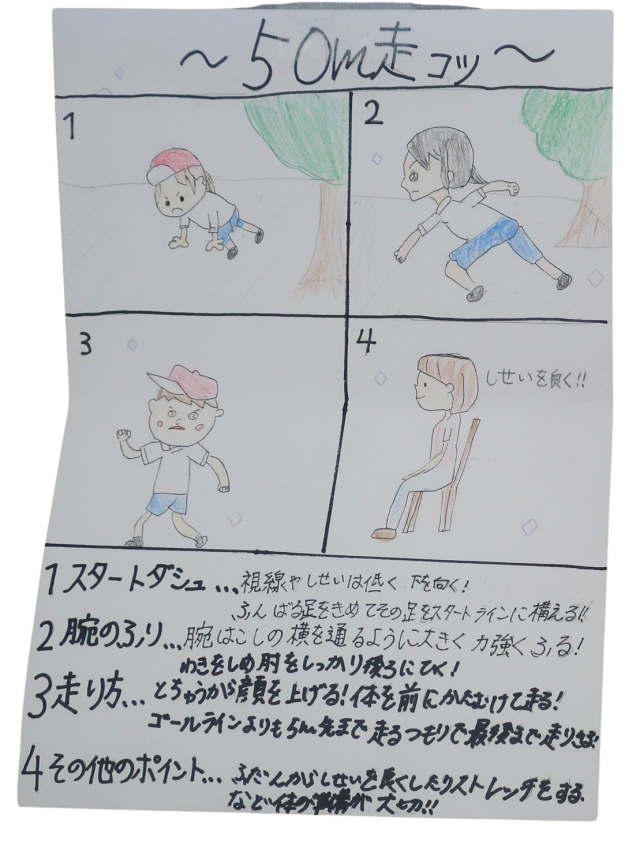 ～50m走コツ～
1
2
3
4
しせいを良く!!
1スタートダシュ...視線やしせいは低く下を向く!
ふんばる足をきめてその足をスタートラインに構える!!
2腕のふり...腕はこしの横を通るように大きく力強くふる!
わきをしめ肘をしっかり後ろにひく!
3走り方...とちゅうから顔を上げる!体を前にかたむけて走る!
ゴールラインよりも5m先まで走るつもりで最後まで走りきる
4その他のポイント...ふだんからしせいを良くしたりストレッチをする
など体の準備が大切!!